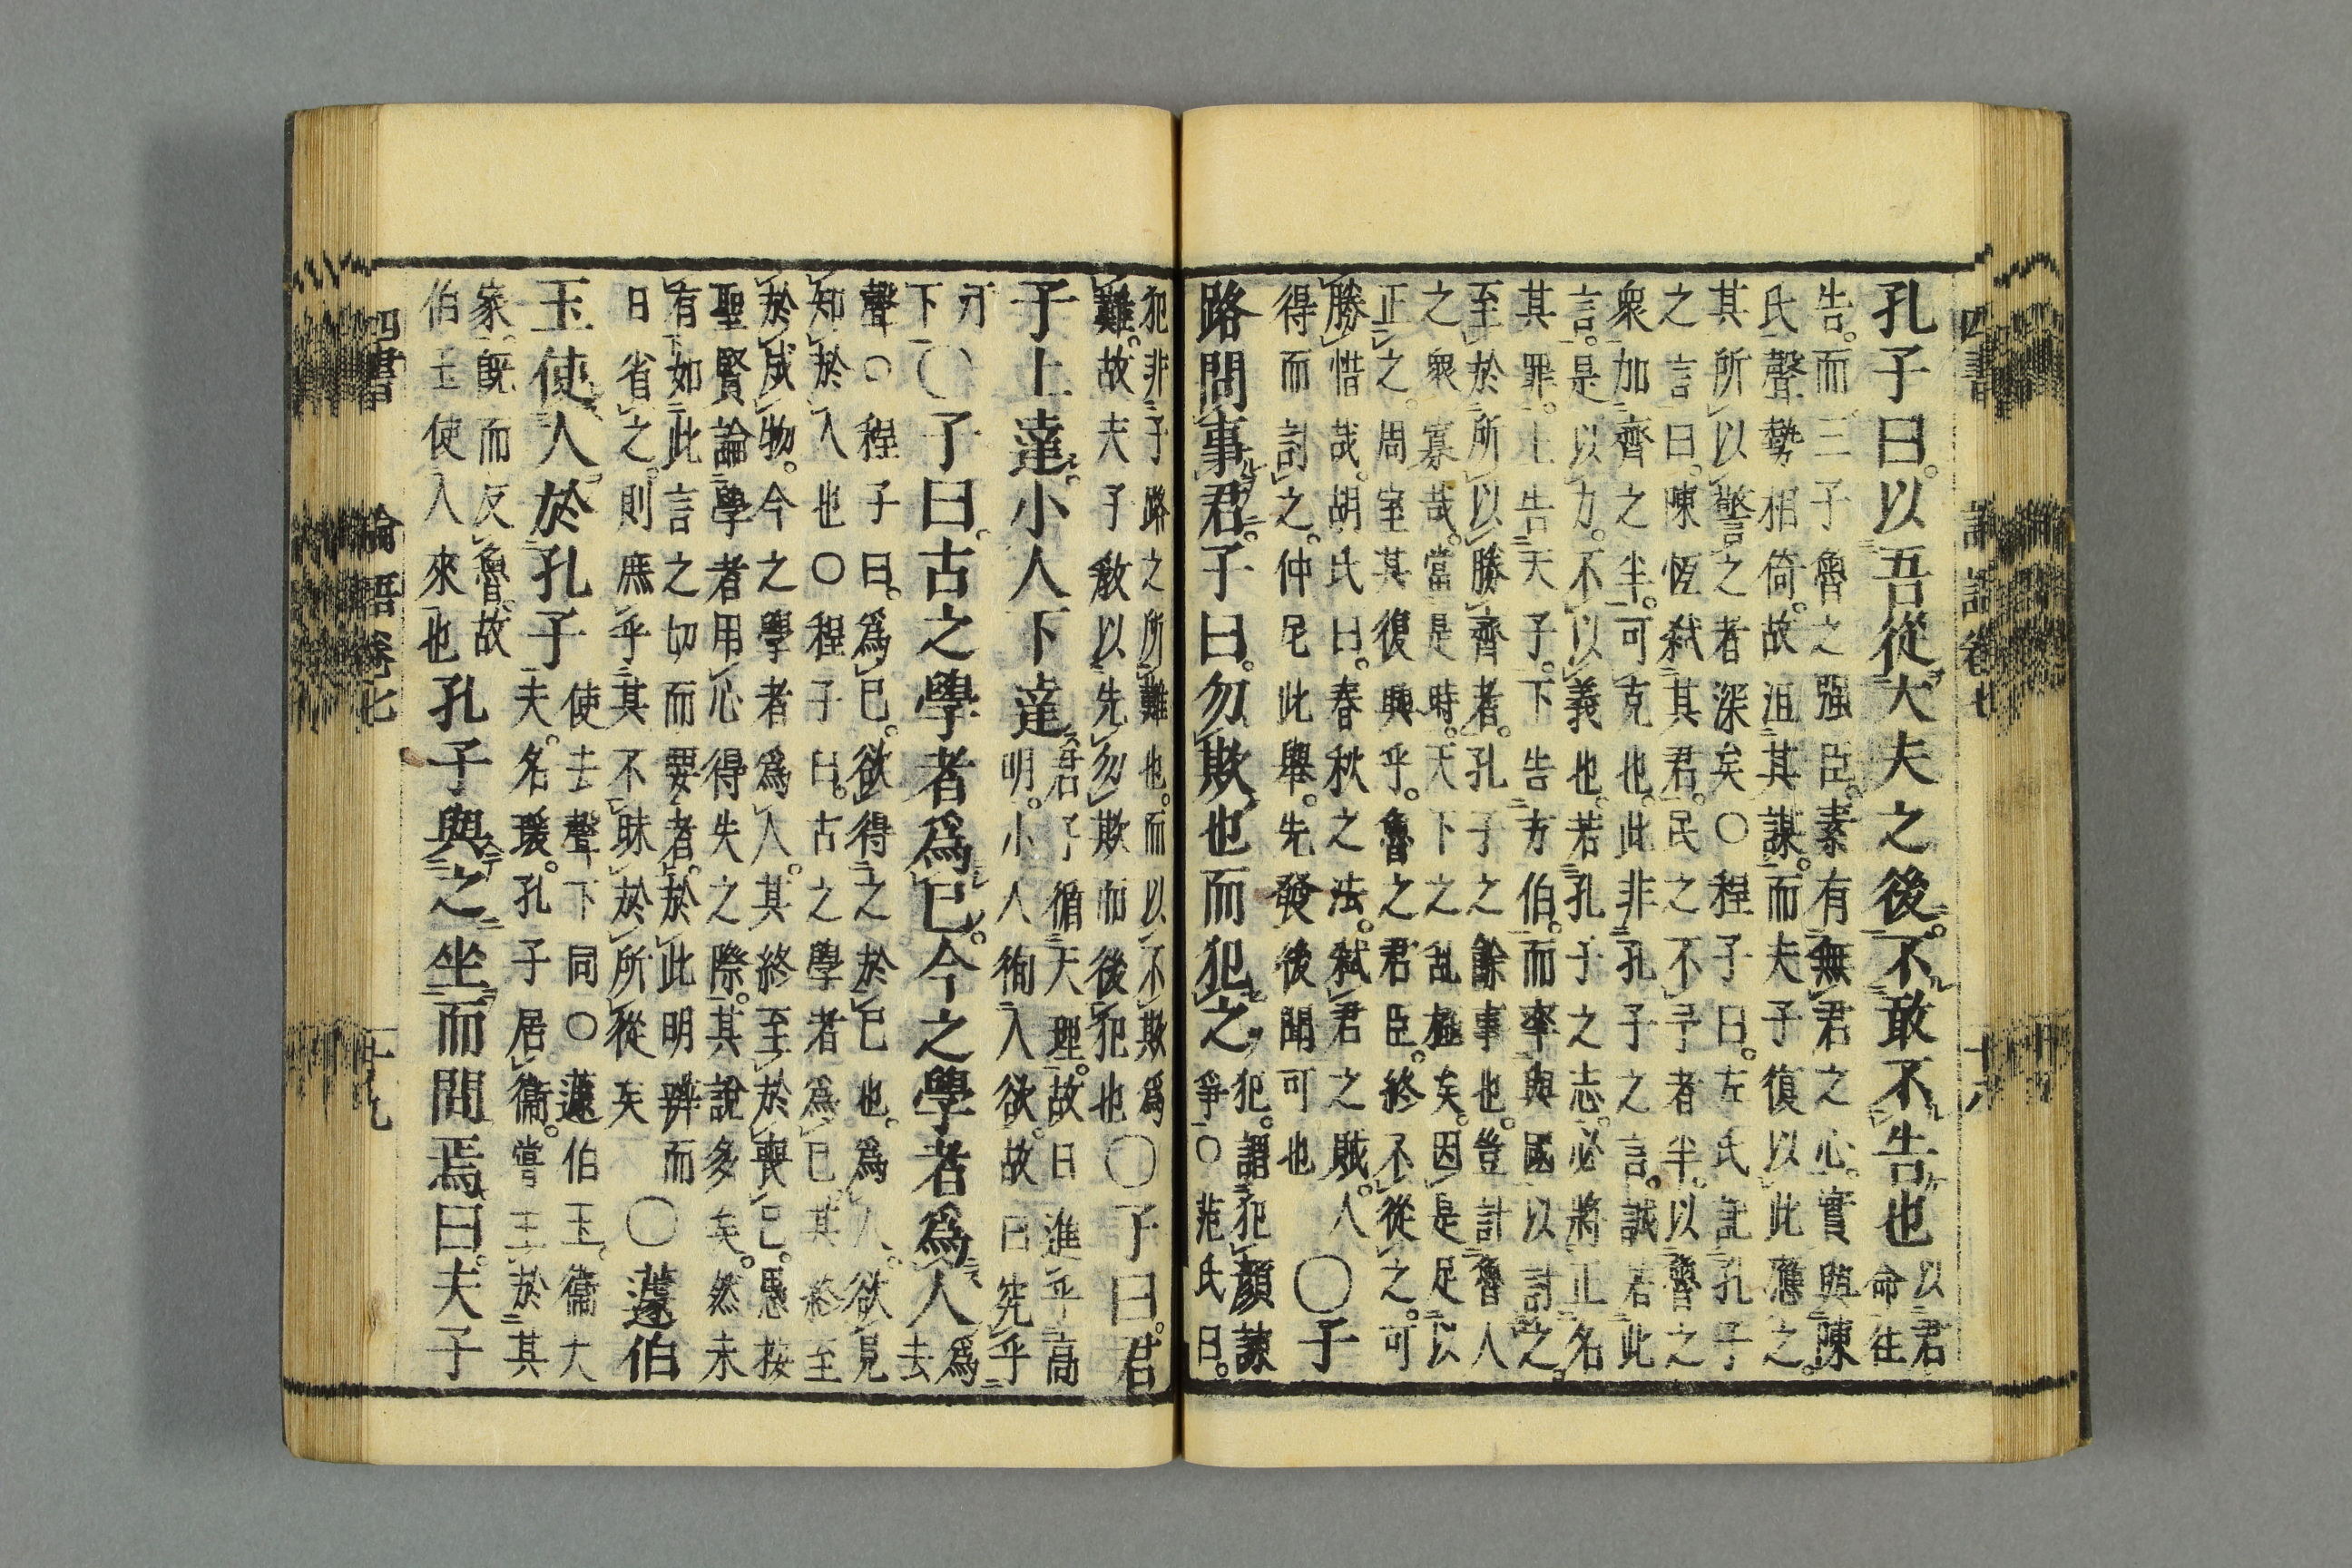 孔子曰。以吾從大夫之後。不敢不告也以君
命往
告。而三子魯之强臣。素有無君之心。實與陳
氏聲勢相倚。故沮其謀。而夫子復以此應之。
其所以警之者深矣○程子曰。左氏記孔子
之言曰。陳恆弑其君。民之不予者半。以魯之
衆加齊之半。可克也。此非孔子之言。誠若此
言。是以力。不以義也。若孔子之志。必將正名
其罪。上告天子。下告方伯。而率與國以討之。
至於所以勝齊者。孔子之餘事也。豈計魯人
之衆寡哉。當是時。天下之乱極矣。因是足以
正之。周室其復興乎。魯之君臣。終不從之。可
勝惜哉。胡氏曰。春秋之法。弑君之賊。人
得而討之。仲尼此舉。先發後聞可也
○子
路問事君。子曰。勿欺也而犯之犯。謂犯顏諫
爭○范氏曰。
犯非子路之所難也。而以不欺爲
難。故夫子敎以先勿欺而後犯也○子曰。君
子上達。小人下達君子循天理。故日進乎高
明。小人徇人欲。故日究乎
汙
下○子曰。古之學者爲已。今之學者爲人爲
去
聲○程子曰。爲已。欲得之於已也。爲人。欲見
知於人也○程子曰。古之學者爲已。其終至
於成物。今之學者爲人。其終至於喪已。愚按
聖賢論學者用心得失之際。其說多矣。然未
有如此言之切而要者。於此明辨而
日省之。則庶乎其不昧於所從矣
○蘧伯
玉使人於孔子使去聲下同○蘧伯玉。衞大
夫。名瑗。孔子居衞。嘗主於其
家。旣而反魯。故
伯玉使人來也孔子與之坐而問焉曰。夫子
四書 論語卷七 十八
四書 論語卷七 十九